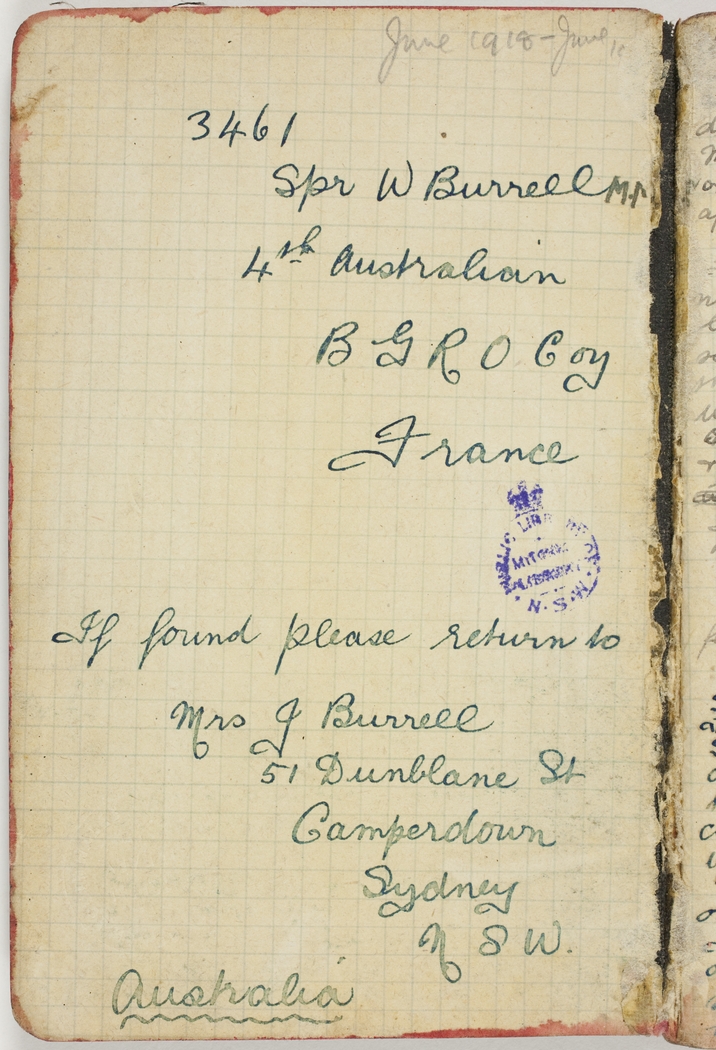 June 1918 - June
3461
Spr W Burrell M.M.
4th Australian
B G R O Coy
France
PUBLIC LIBRARY OF
MITCHELL
LIBRARY
N.S.W.
If found please return to
Mrs J Burrell
51 Dunblane St
Camperdown
Sydney
N S W.
Australia